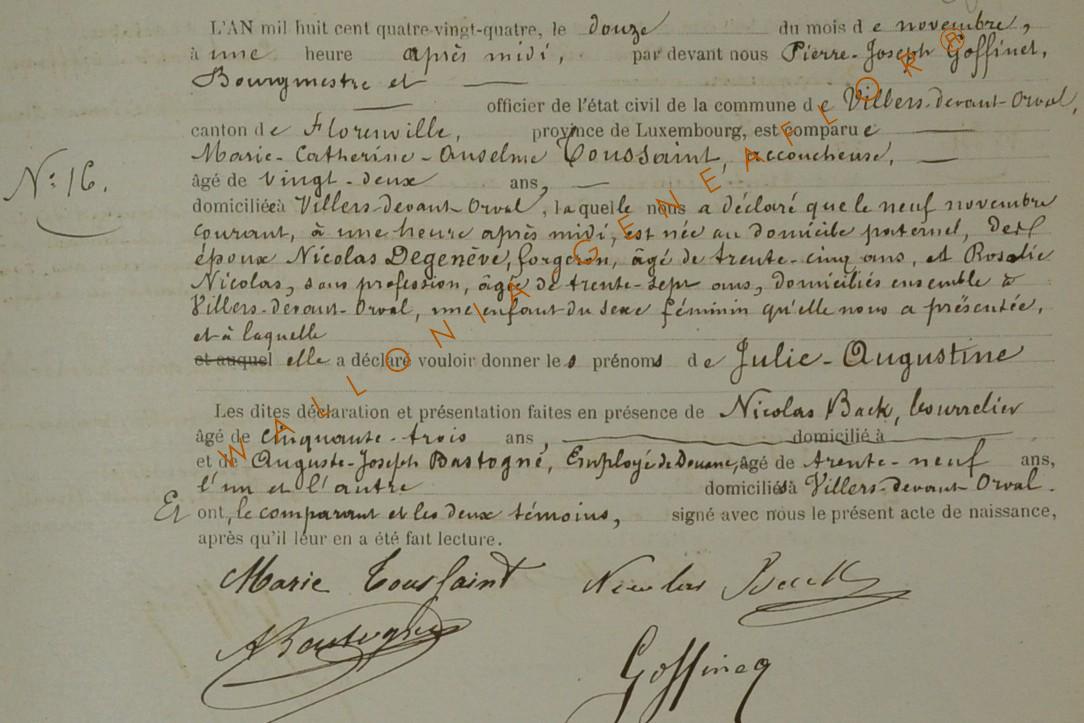 L'AN mil huit cent quatre-vingt-quatre, le douze du mois de novembre,
à une heure après midi, par devant nous Pierre-Joseph Goffinet,
Bourgmestre et
officier de l'état civil de la commune de Villers-devant-Orval,
canton de Florenville, province de Luxembourg, est comparue
Marie-Catherine-Anselme Toussaint, accoucheuse,
N° 16.
âgé de vingt-deux ans,
domiciliée à Villers-devant-Orval, laquelle nous a déclaré que le neuf novembre
courant, à une heure après midi, est née au domicile paternel, des
époux Nicolas Degenève, forgeron, âgé de trente-cinq ans, et Rosalie
Nicolas, sans profession, âgée de trente-sept ans, domiciliés ensemble à
Villers-devant-Orval, une enfant du sexe féminin qu'elle nous a présentée,
et à laquelle
et auquel elle a déclaré vouloir donner les prénoms de Julie-Augustine
Les dites déclaration et présentation faites en présence de Nicolas Back, bourrelier
âgé de cinquante-trois ans, domicilié à
et de Auguste-Joseph Bastogne, Employé de Douane, âgé de trente-neuf ans,
l'un et l'autre domiciliés à Villers-devant-Orval.
Et ont, le comparant et les deux témoins, signé avec nous le présent acte de naissance,
après qu'il leur en a été fait lecture.
Marie Toussaint Nicolas Back
ABastogne
Goffineq
WALLONIA GENEAFLOR®